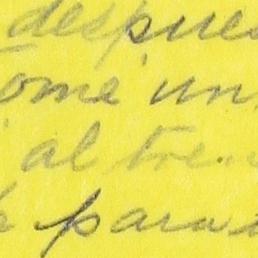 despues
tome un
al tre
para